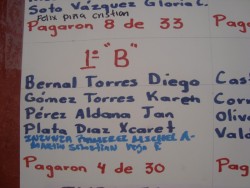 Soto Vázquez Gloria C.
Felix piña cristian
Pagaron 8 de 33
1º "B"
Bernal Torres Diego
Gómez Torres Karen
Pérez Aldana Jan
Plata Díaz Xcaret
A-
Martin Sebastian Vega F.
Pagaron 4 de 30
Cas
Con
Oliv
Vald
Pa